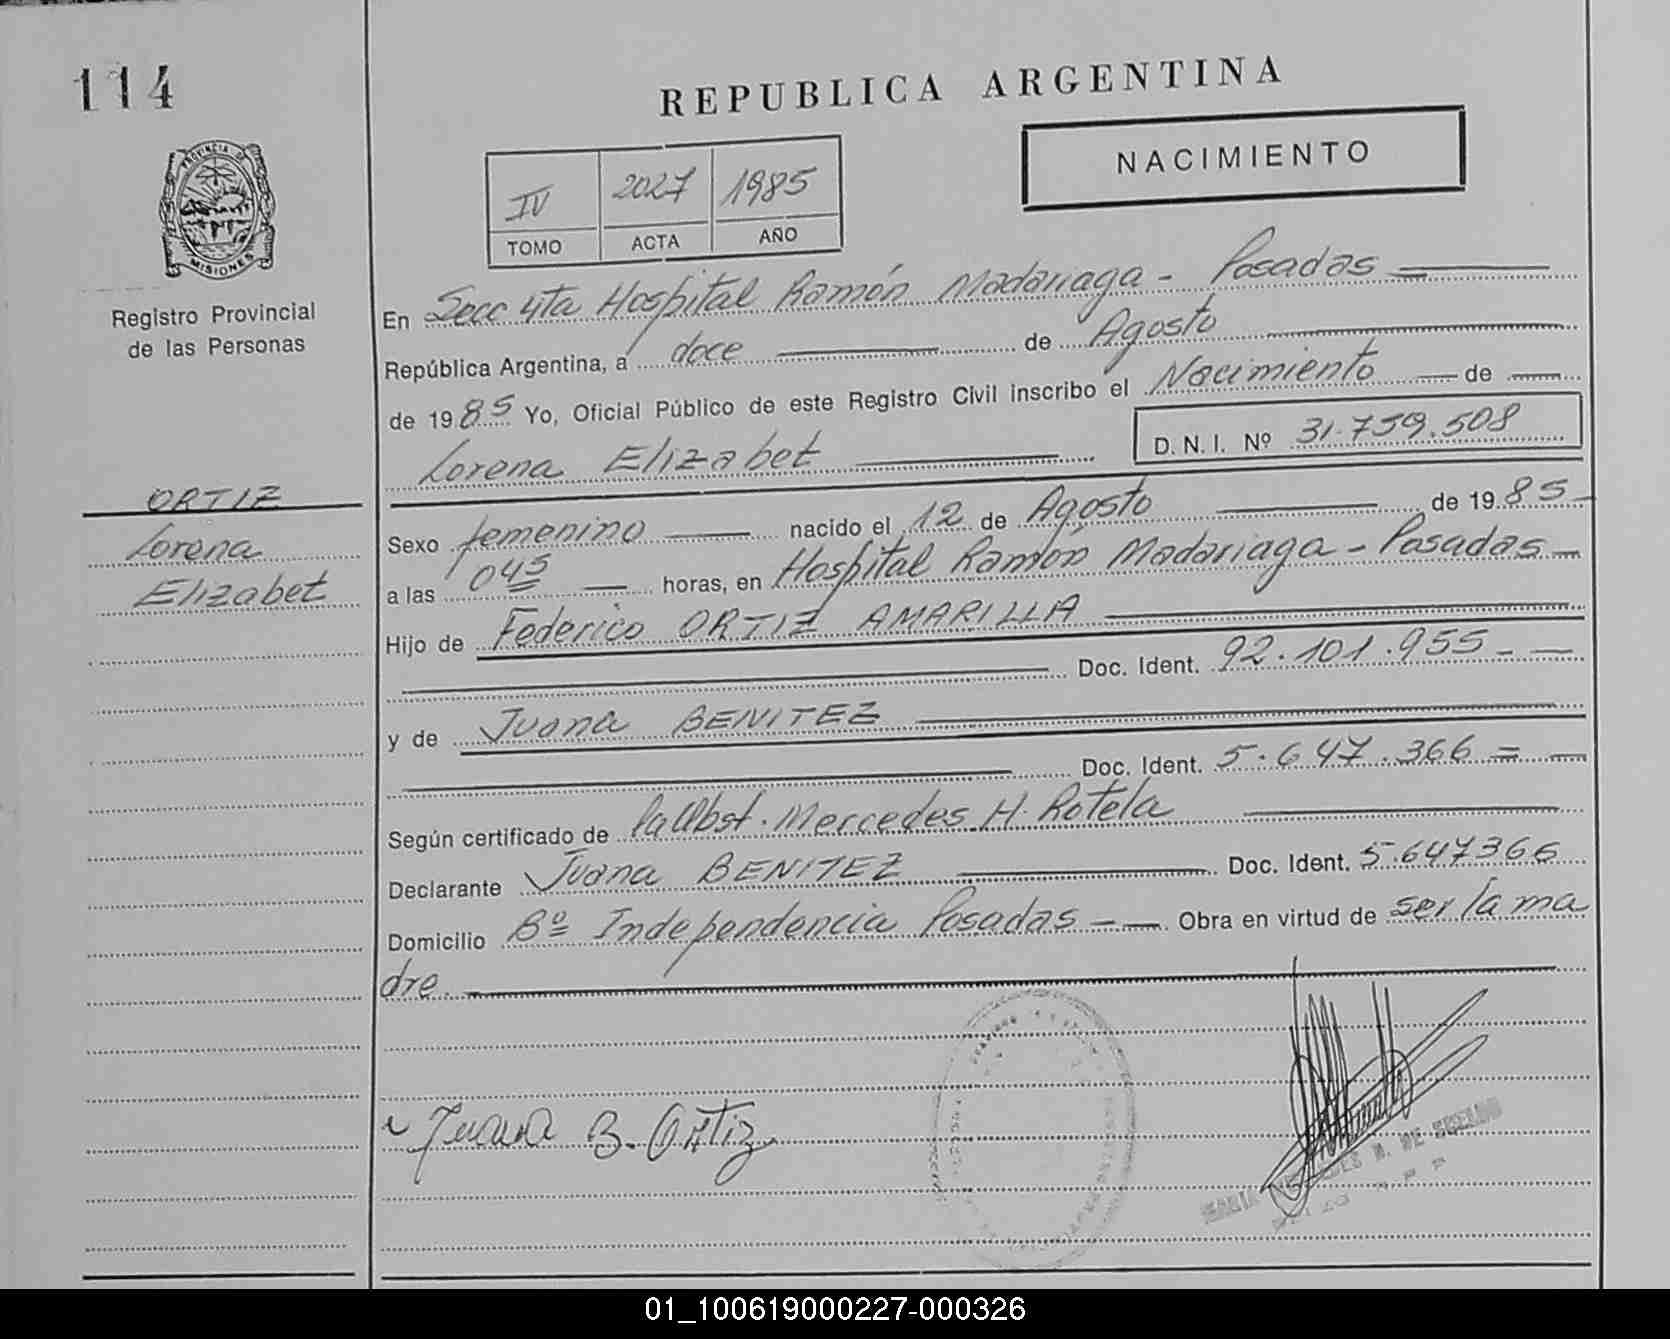 114
REPUBLICA ARGENTINA
NACIMIENTO
IV 2027 1985
TOMO ACTA AÑO
PROVINCIA DE
MISIONES
Registro Provincial
de las Personas
ORTIZ
Lorena
Elizabet
En Secc 4ta Hospital Ramón Madariaga - Posadas
República Argentina, a doce de Agosto
de 1985 Yo, Oficial Público de este Registro Civil inscribo el Nacimiento de
Lorena Elizabet D. N. I. Nº 31.759.508
Sexo femenino nacido el 12 de Agosto de 1985
a las 045 horas, en Hospital Ramón Madariaga - Posadas
Hijo de Federico ORTIZ AMARILLA
Doc. Ident. 92.101.955
y de Juana BENITEZ
Doc. Ident. 5.647.366
Según certificado de la Obst. Mercedes H. Rotela
Declarante Juana BENITEZ Doc. Ident. 5.647366
Domicilio Bº Independencia Posadas Obra en virtud de ser la ma
dre.
Juana B. Ortiz
01_100619000227-000326